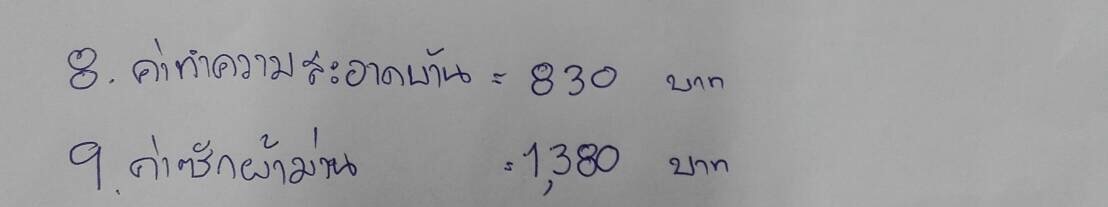 8. ค่าทำความสะอาดบ้าน = 830 บาท
9. ค่าซักผ้าม่าน = 1,380 บาท